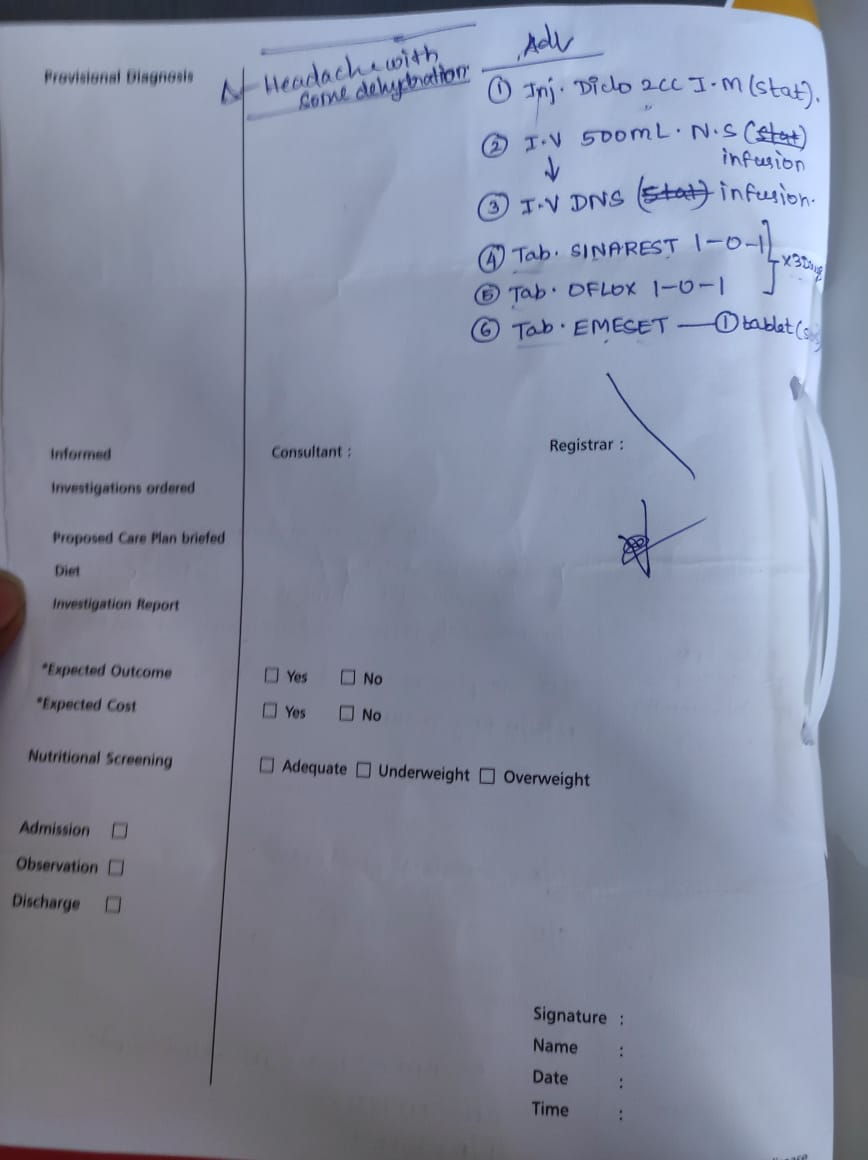 Provisional Diagnosis
Δ Headache with
some dehydration.
Adv
① Inj. Diclo 2cc I.M (stat).
② I.V 500mL. N.S (stat)
infusion
↓
③ I.V DNS (stat) infusion.
④ Tab. SINAREST 1-0-1
x3Days
⑤ Tab. OFLOX 1-0-1
⑥ Tab. EMESET — ① tablet
Informed
Consultant :
Registrar :
Investigations ordered
Proposed Care Plan briefed
Diet
Investigation Report
*Expected Outcome ☐ Yes ☐ No
*Expected Cost ☐ Yes ☐ No
Nutritional Screening ☐ Adequate ☐ Underweight ☐ Overweight
Admission ☐
Observation ☐
Discharge ☐
Signature :
Name :
Date :
Time :